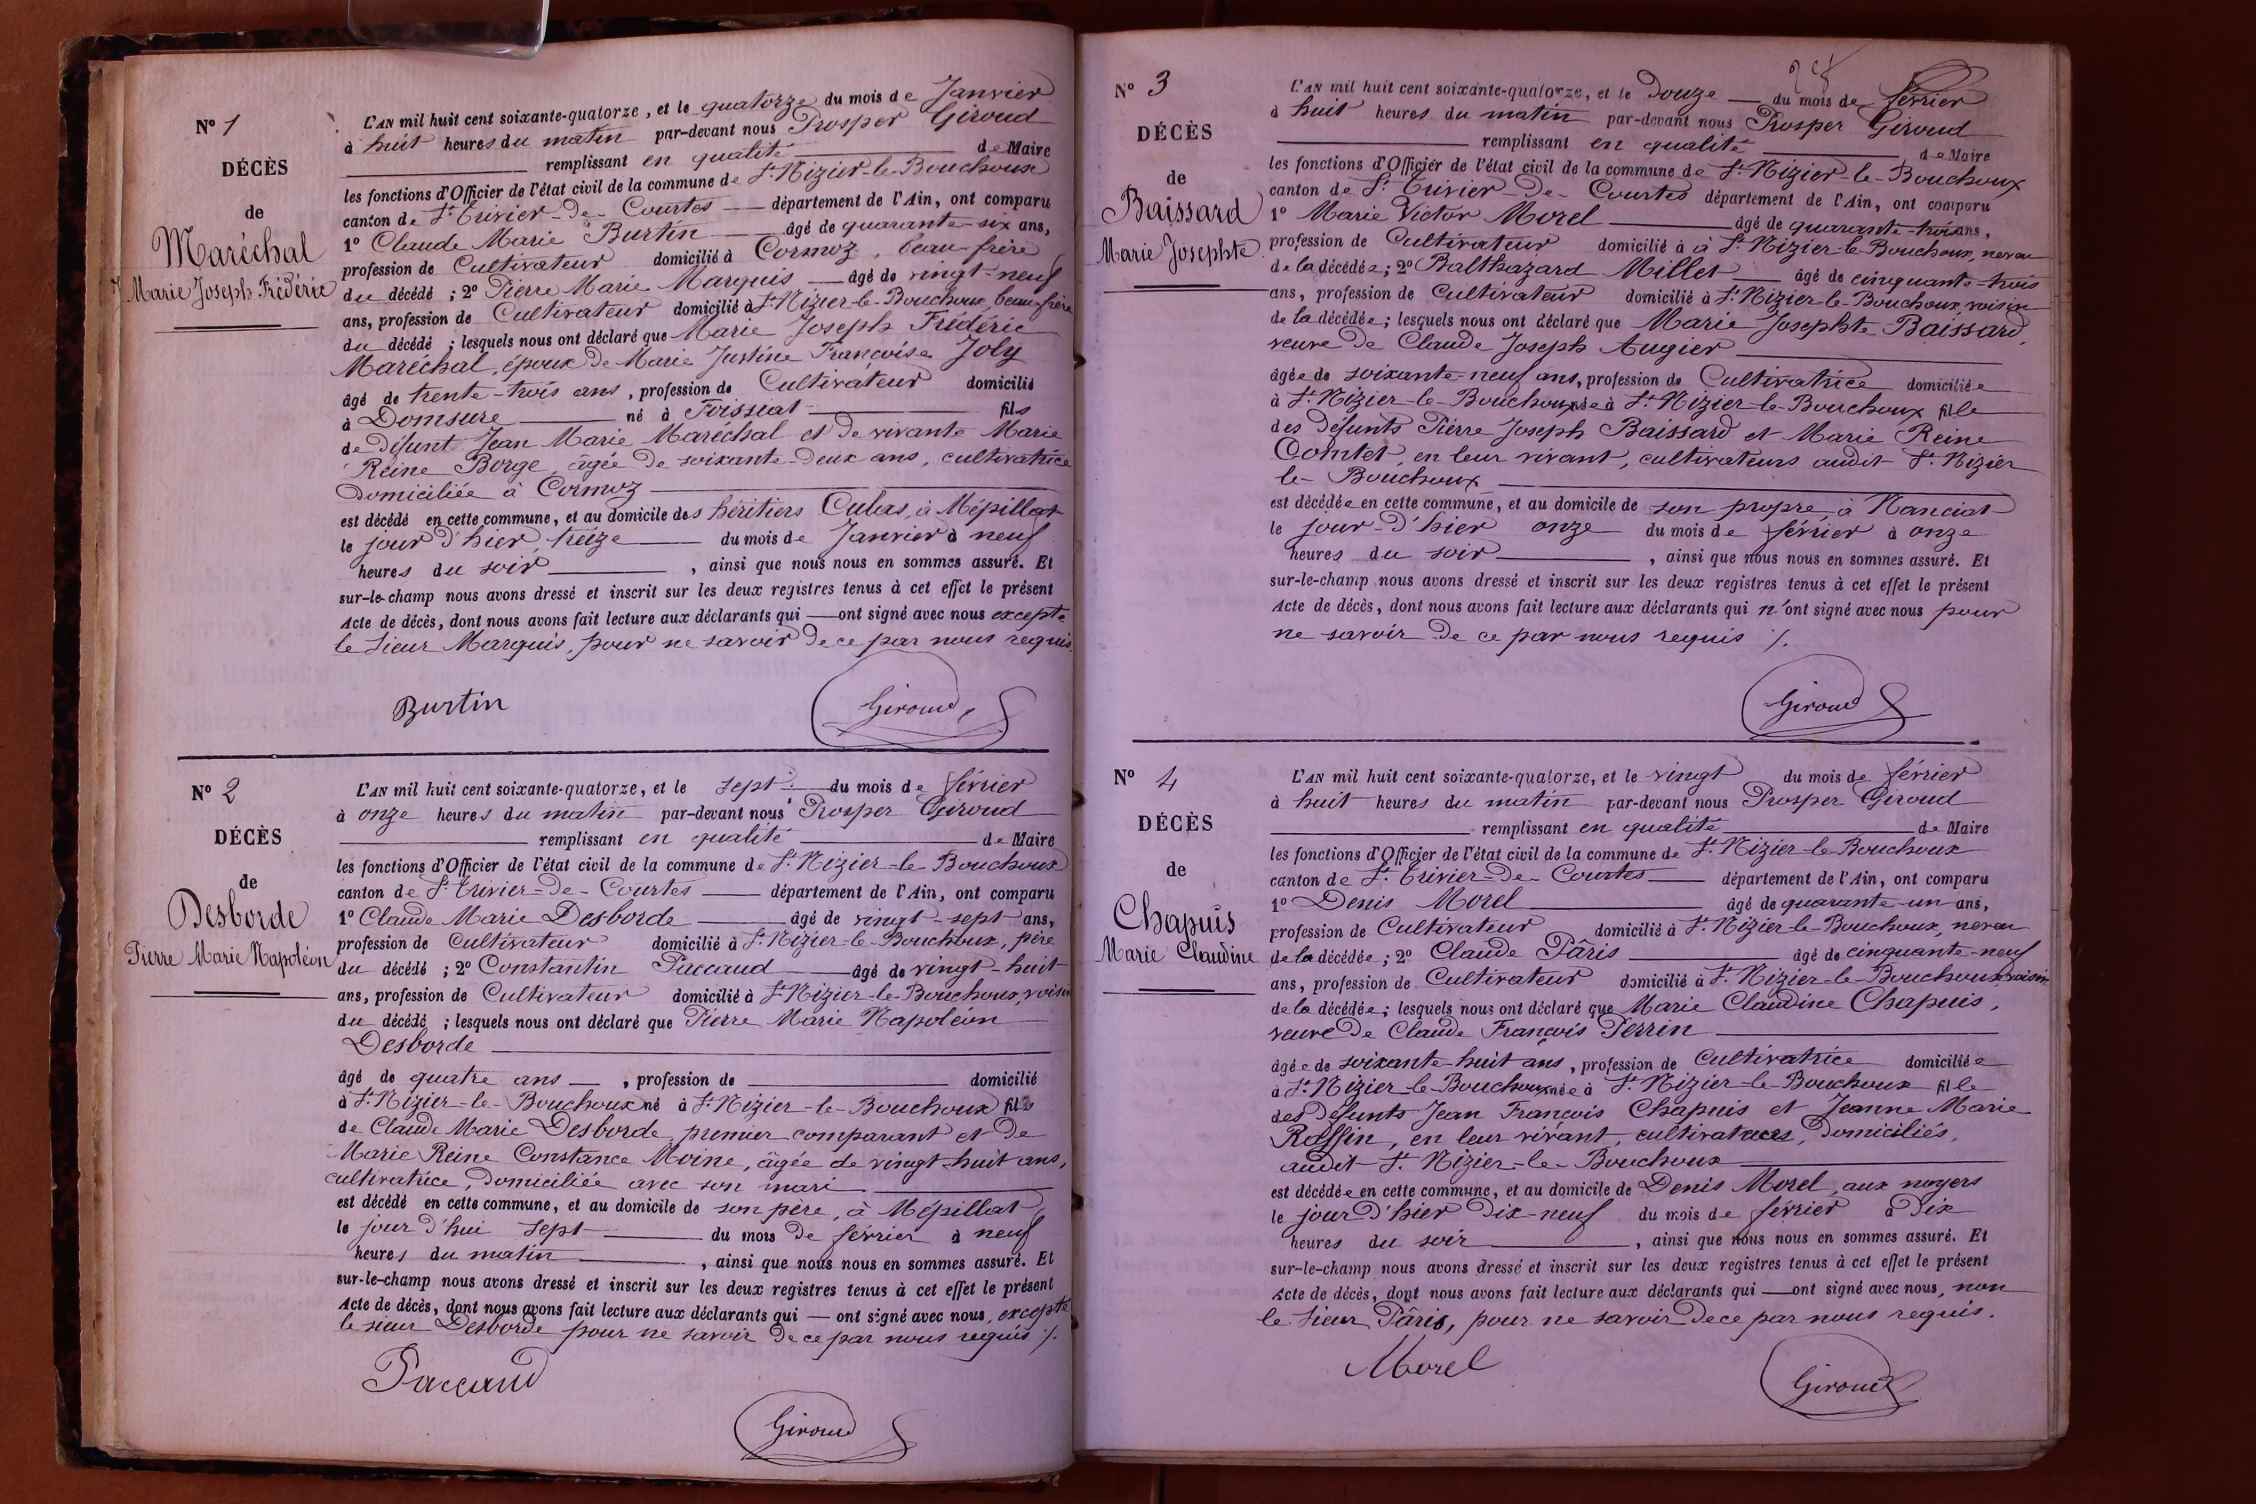 N° 1
DÉCÈS
de
Maréchal
Marie Joseph Frédéric
L'AN mil huit cent soixante-quatorze, et le quatorze du mois de Janvier
à huit heures du matin par-devant nous Prosper Giroud
remplissant en qualité de Maire
les fonctions d'Officier de l'état civil de la commune de St Nizier-le-Bouchoux
canton de St Trivier-De-Courtes département de l'Ain, ont comparu
1° Claude Marie Burtin âgé de quarante-six ans,
profession de Cultivateur domicilié à Cormoz, beau-frère
du décédé ; 2° Pierre Marie Marquis âgé de vingt-neuf
ans, profession de Cultivateur domicilié à St Nizier-le-Bouchoux, beau-frère
du décédé ; lesquels nous ont déclaré que Marie Joseph Frédéric
Maréchal, époux de Marie Justine Françoise Joly
âgé de trente-trois ans, profession de Cultivateur domicilié
à Domsure né à Foissiat fils
de défunt Jean Marie Maréchal et de vivante Marie
Reine Borge, âgée de soixante-deux ans, cultivatrice
domiciliée à Cormoz
est décédé en cette commune, et au domicile des héritiers Cubas, à Mépillat
le jour d'hier, treize du mois de Janvier à neuf
heures du soir, ainsi que nous nous en sommes assuré. Et
sur-le-champ nous avons dressé et inscrit sur les deux registres tenus à cet effet le présent
Acte de décès, dont nous avons fait lecture aux déclarants qui — ont signé avec nous excepté
le sieur Marquis, pour ne savoir de ce par nous requis.
Burtin
Giroud
N° 2
DÉCÈS
de
Desborde
Pierre Marie Napoléon
L'AN mil huit cent soixante-quatorze, et le sept du mois de février
à onze heures du matin par-devant nous Prosper Giroud
remplissant en qualité de Maire
les fonctions d'Officier de l'état civil de la commune de St Nizier-le-Bouchoux
canton de St Trivier-De-Courtes département de l'Ain, ont comparu
1° Claude Marie Desborde âgé de vingt-sept ans,
profession de Cultivateur domicilié à St Nizier-le-Bouchoux, père
du décédé ; 2° Constantin Paccaud âgé de vingt-huit
ans, profession de Cultivateur domicilié à St Nizier-le-Bouchoux, voisin
du décédé ; lesquels nous ont déclaré que Pierre Marie Napoléon
Desborde
âgé de quatre ans, profession de domicilié
à St Nizier-le-Bouchoux né à St Nizier-le-Bouchoux fils
de Claude Marie Desborde, premier comparant et de
Marie Reine Constance Moine, âgée de vingt-huit ans,
cultivatrice, domiciliée avec son mari
est décédé en cette commune, et au domicile de son père, à Mépillat,
le jour d'hui sept du mois de février à neuf
heures du matin, ainsi que nous nous en sommes assuré. Et
sur-le-champ nous avons dressé et inscrit sur les deux registres tenus à cet effet le présent
Acte de décès, dont nous avons fait lecture aux déclarants qui — ont signé avec nous, excepté
le sieur Desborde pour ne savoir de ce par nous requis ./.
Paccaud
Giroud
N° 3
DÉCÈS
de
Baissard
Marie Josephte
L'AN mil huit cent soixante-quatorze, et le douze du mois de février
à huit heures du matin par-devant nous Prosper Giroud
remplissant en qualité de Maire
les fonctions d'Officier de l'état civil de la commune de St Nizier-le-Bouchoux
canton de St Trivier-De-Courtes département de l'Ain, ont comparu
1° Marie Victor Morel âgé de quarante-trois ans,
profession de Cultivateur domicilié à à St Nizier-le-Bouchoux, neveu
de la décédée ; 2° Balthazard Millet âgé de cinquante-trois
ans, profession de Cultivateur domicilié à St Nizier-le-Bouchoux, voisin
de la décédée ; lesquels nous ont déclaré que Marie Josephte Baissard,
veuve de Claude Joseph Augier
âgée de soixante-neuf ans, profession de Cultivatrice domiciliée
à St Nizier-le-Bouchoux née à St Nizier-le-Bouchoux fille
des défunts Pierre Joseph Baissard et Marie Reine
Comtet, en leur vivant, cultivateurs audit St Nizier
le-Bouchoux
est décédée en cette commune, et au domicile de son propre, à Nanciat
le jour-d'hier onze du mois de février à onze
heures du soir, ainsi que nous nous en sommes assuré. Et
sur-le-champ nous avons dressé et inscrit sur les deux registres tenus à cet effet le présent
Acte de décès, dont nous avons fait lecture aux déclarants qui n'ont signé avec nous pour
ne savoir de ce par nous requis ./.
Giroud
N° 4
DÉCÈS
de
Chapuis
Marie Claudine
L'AN mil huit cent soixante-quatorze, et le vingt du mois de février
à huit heures du matin par-devant nous Prosper Giroud
remplissant en qualité de Maire
les fonctions d'Officier de l'état civil de la commune de St Nizier-le-Bouchoux
canton de St Trivier-De-Courtes département de l'Ain, ont comparu
1° Denis Morel âgé de quarante-un ans,
profession de Cultivateur domicilié à St Nizier-le-Bouchoux, neveu
de la décédée ; 2° Claude Pâris âgé de cinquante-neuf
ans, profession de Cultivateur domicilié à St Nizier-le-Bouchoux, voisin
de la décédée ; lesquels nous ont déclaré que Marie Claudine Chapuis,
veuve de Claude François Perrin
âgée de soixante-huit ans, profession de Cultivatrice domiciliée
à St Nizier-le-Bouchoux née à St Nizier-le-Bouchoux fille
des défunts Jean François Chapuis et Jeanne Marie
Raffin, en leur vivant, cultivateurs, domiciliés,
audit St Nizier-le-Bouchoux
est décédée en cette commune, et au domicile de Denis Morel, aux noyers
le jour d'hier dix-neuf du mois de février à dix
heures du soir, ainsi que nous nous en sommes assuré. Et
sur-le-champ nous avons dressé et inscrit sur les deux registres tenus à cet effet le présent
Acte de décès, dont nous avons fait lecture aux déclarants qui — ont signé avec nous, non
le sieur Pâris, pour ne savoir de ce par nous requis.
Morel
Giroud